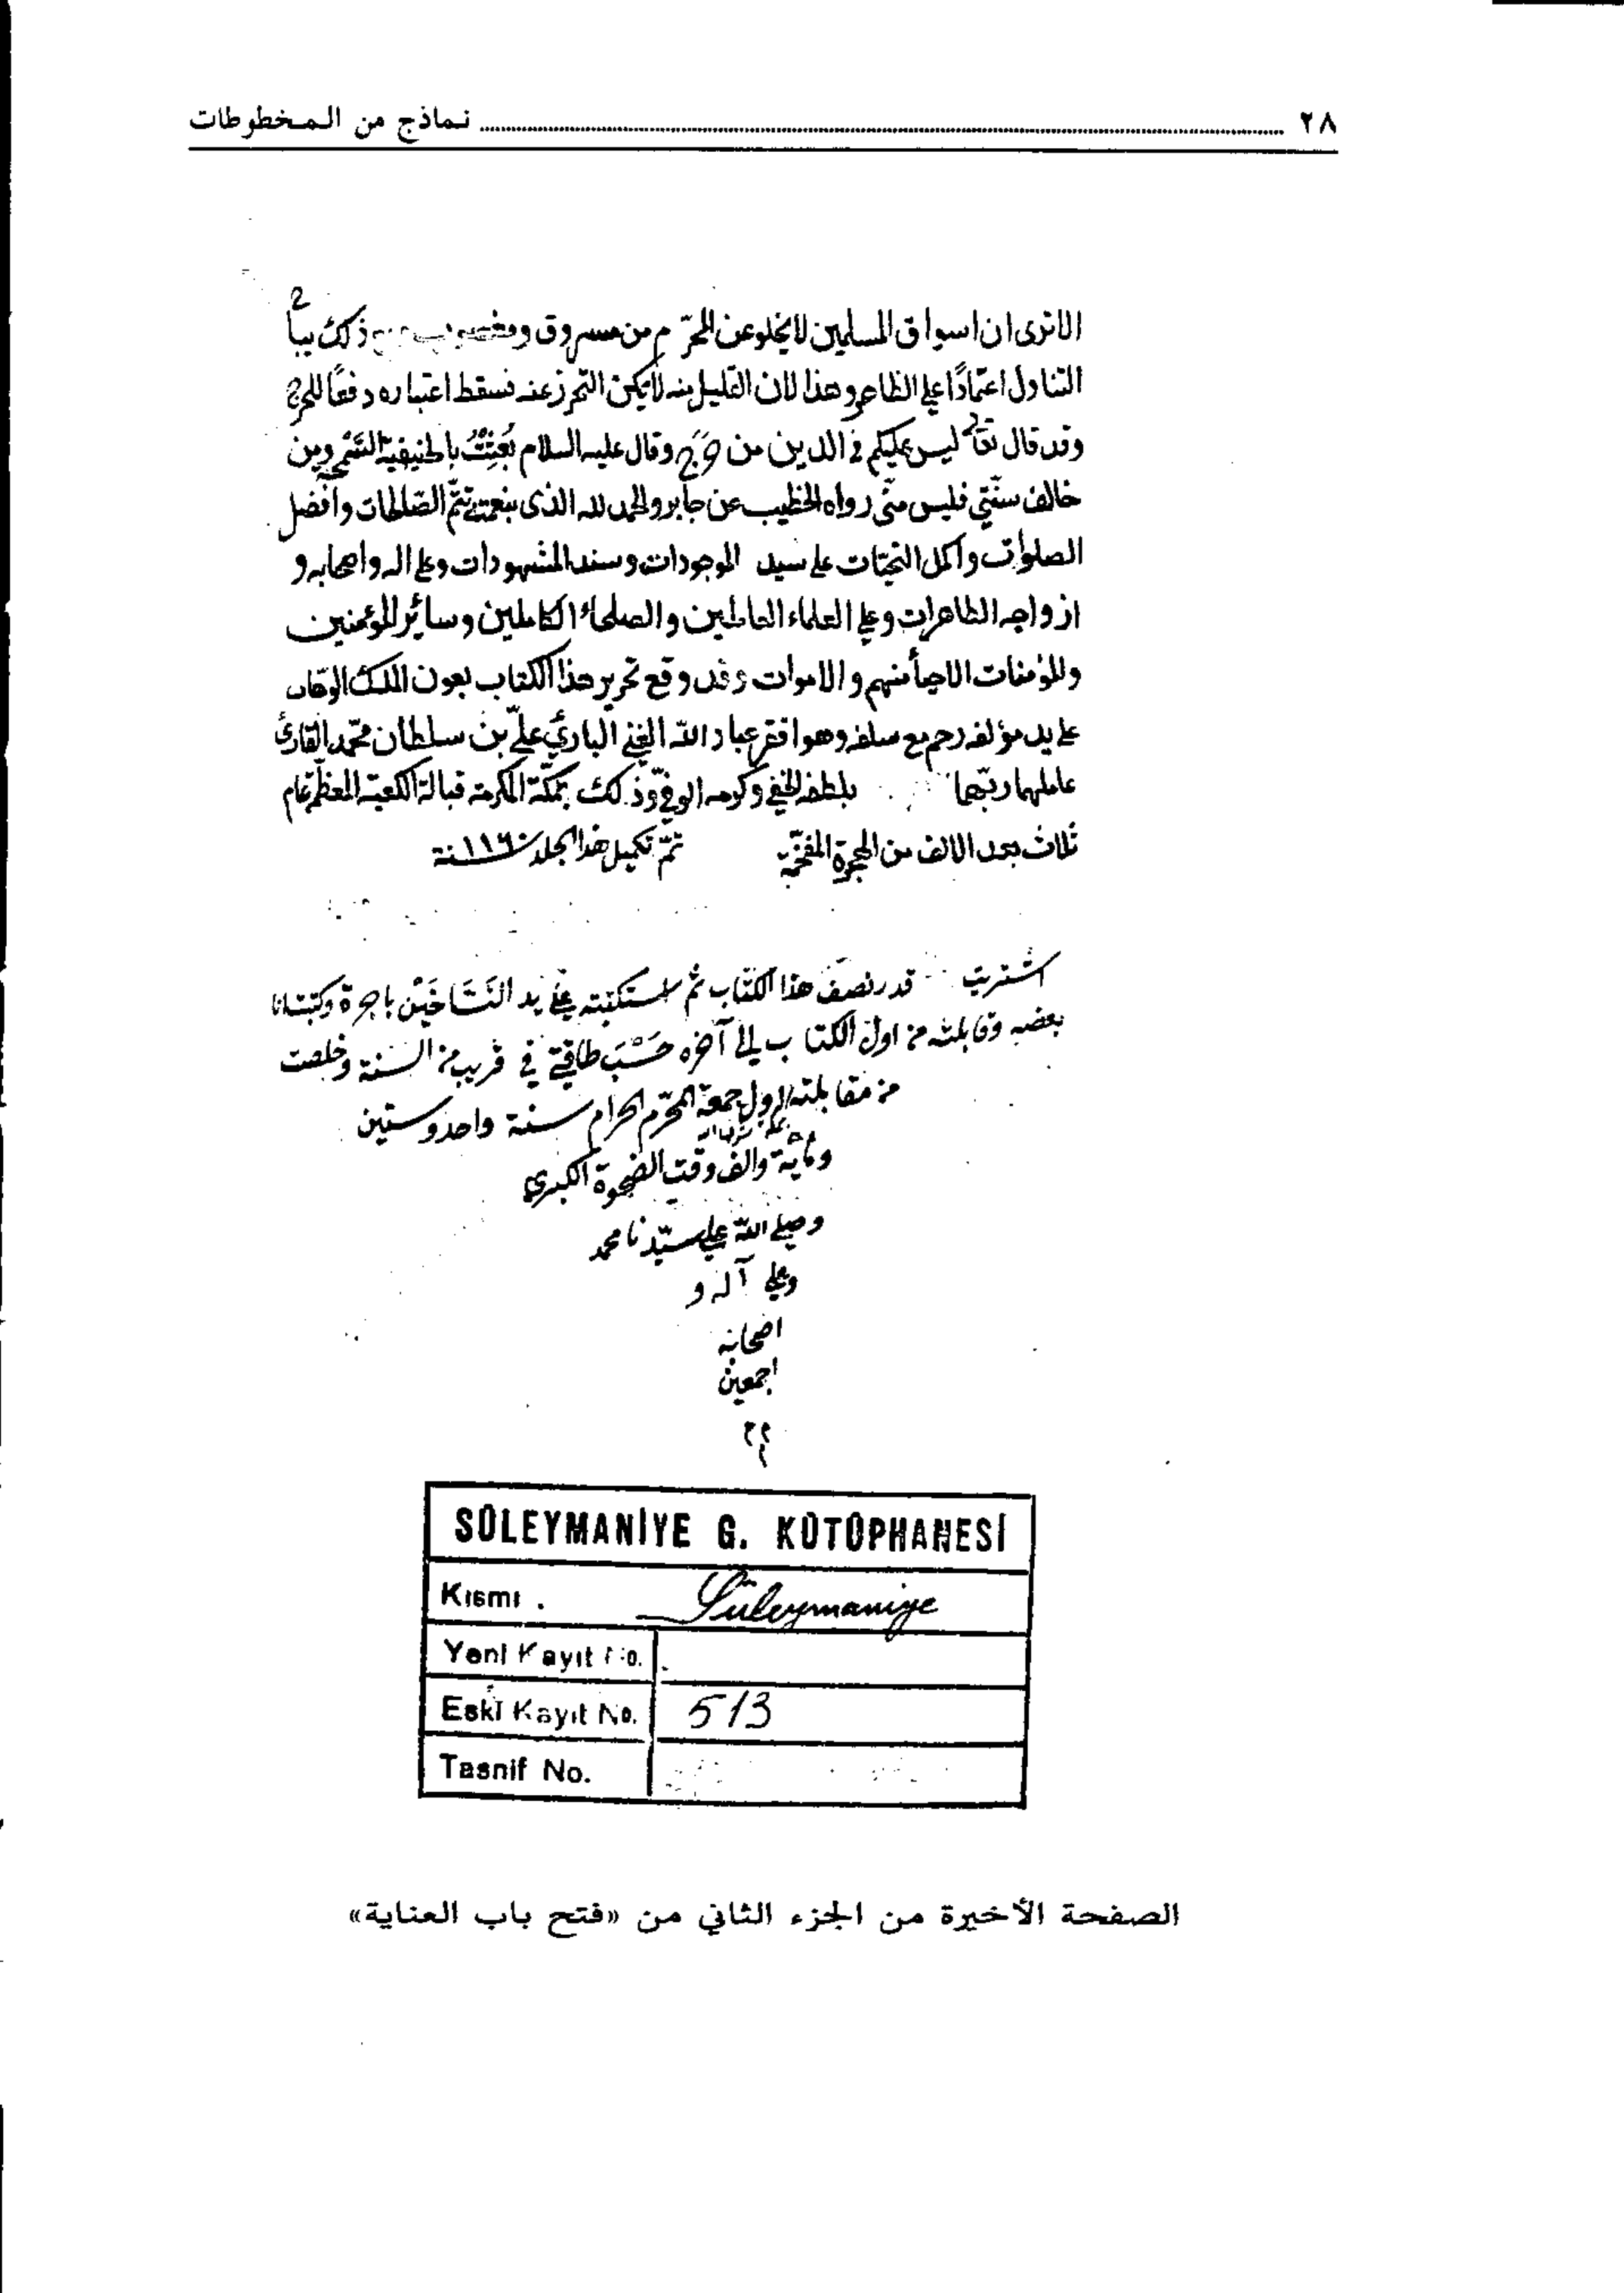 ٢٨ ........ نماذج من المخطوطات
الاترى ان اسواق المسلمين لا يخلو عن المحرّم من مسروق ومغصوب ومع ذلك يباح
التناول اعتمادًا على الظاهر وهذا لان القليل منه لا يمكن التحرز عنه فسقط اعتباره دفعًا للحرج
وقد قال تعالى ليس عليكم في الدين من حرج وقال عليه السلام بُعِثْتُ بالحنيفية السَّمْحة ومن
خالف سنّتي فليس منّي رواه الخطيب عن جابر والحمد لله الذى بنعمته تتمّ الصّالحات وافضل
الصلوات واكمل التحيّات على سيد الموجودات وسند المشهودات وعلى اله واصحابه و
ازواجه الطاهرات وعلى العلماء العاملين والصلحاء الكاملين وسائر المؤمنين
والمؤمنات الاحيأ منهم والاموات وقد وقع تحرير هذا الكتاب بعون الملك الوهّاب
على يد مؤلفه رحم مع سلفه وهو افقر عباد الله الغني الباريّ عليّ بن سلطان محمّد القارئ
عاملهما ربّهما بلطفه الخفي وكرمه الوفيّ وذلك بمكّة المكرمة قبالة الكعبة المعظّمة عام
ثلاث بعد الالف من الهجرة المفخّمة تمّ تكميل هذا الجلد ١١٦٠ سنة
اشتريت قدر نصف هذا الكتاب ثم استكتبته على يد النَسَّاخَيْن باجرة وكتبت انا
بعضه وقابلته من اول الكتاب الى آخره حَسْبَ طاقتي في قريب من السنة وخلصت
من مقابلته اول جمعة المحرّم الحرام سنة واحد وستين
ومأية والف وقت الضحوة الكبرى
وصلى الله على سيّدنا محمد
وعلى آله و
اصحابه
اجمعين
SÜLEYMANİYE G. KÜTÜPHANESİ
Kısmı . Süleymaniye
Yeni Kayıt No.
Eski Kayıt No. 513
Tasnif No.
الصفحة الأخيرة من الجزء الثاني من «فتح باب العناية»